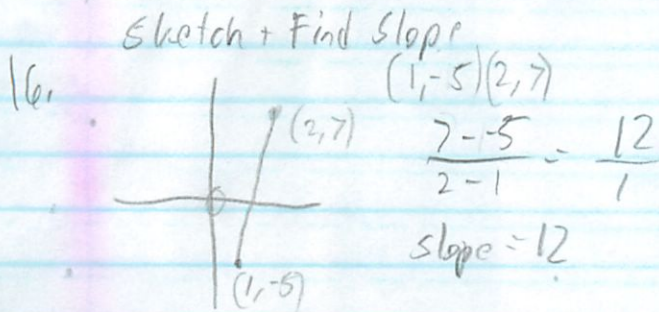 Sketch + Find Slope
16.
(1,-5)(2,7)
(2,7)
7--5/2-1 = 12/1
slope = 12
(1,-5)